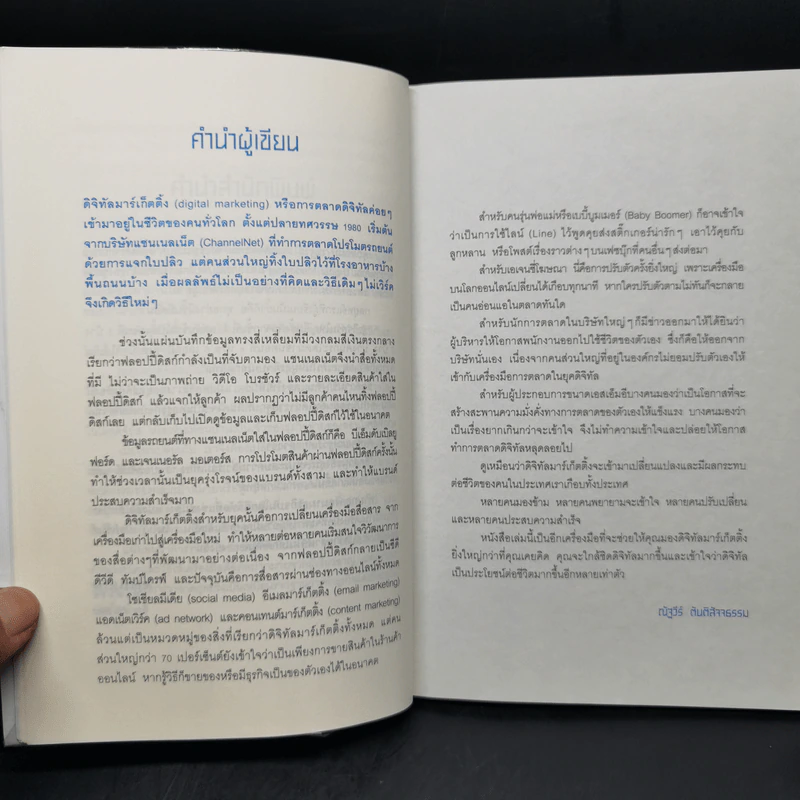 คำนำผู้เขียน
ดิจิทัลมาร์เก็ตติ้ง (digital marketing) หรือการตลาดดิจิทัลค่อยๆ
เข้ามาอยู่ในชีวิตของคนทั่วโลก ตั้งแต่ปลายทศวรรษ 1980 เริ่มต้น
จากบริษัทแชนเนลเน็ต (ChannelNet) ที่ทำการตลาดโปรโมตรถยนต์
ด้วยการแจกใบปลิว แต่คนส่วนใหญ่ทิ้งใบปลิวไว้ที่โรงอาหารบ้าง
พื้นถนนบ้าง เมื่อผลลัพธ์ไม่เป็นอย่างที่คิดและวิธีเดิมๆ ไม่เวิร์ค
จึงเกิดวิธีใหม่ๆ
ช่วงนั้นแผ่นบันทึกข้อมูลทรงสี่เหลี่ยมที่มีวงกลมสีเงินตรงกลาง
เรียกว่าฟลอปปี้ดิสก์กำลังเป็นที่จับตามอง แชนเนลเน็ตจึงนำสื่อทั้งหมด
ที่มี ไม่ว่าจะเป็นภาพถ่าย วิดีโอ โบรชัวร์ และรายละเอียดสินค้าใส่ใน
ฟลอปปี้ดิสก์ แล้วแจกให้ลูกค้า ผลปรากฏว่าไม่มีลูกค้าคนไหนทิ้งฟลอปปี้
ดิสก์เลย แต่กลับเก็บไปเปิดดูข้อมูลและเก็บฟลอปปี้ดิสก์ไว้ใช้ในอนาคต
ข้อมูลรถยนต์ที่ทางแชนเนลเน็ตใส่ในฟลอปปี้ดิสก์ก็คือ บีเอ็มดับเบิลยู
ฟอร์ด และเจนเนอรัล มอเตอร์ส การโปรโมตสินค้าผ่านฟลอปปี้ดิสก์ครั้งนั้น
ทำให้ช่วงเวลานั้นเป็นยุครุ่งโรจน์ของแบรนด์ทั้งสาม และทำให้แบรนด์
ประสบความสำเร็จมาก
ดิจิทัลมาร์เก็ตติ้งสำหรับยุคนั้นคือการเปลี่ยนเครื่องมือสื่อสาร จาก
เครื่องมือเก่าไปสู่เครื่องมือใหม่ ทำให้หลายต่อหลายคนเริ่มสนใจวิวัฒนาการ
ของสื่อต่างๆที่พัฒนามาอย่างต่อเนื่อง จากฟลอปปี้ดิสก์กลายเป็นซีดี
ดีวีดี ทัมป์ไดรฟ์ และปัจจุบันคือการสื่อสารผ่านช่องทางออนไลน์ทั้งหมด
โซเชียลมีเดีย (social media) อีเมลมาร์เก็ตติ้ง (email marketing)
แอดเน็ตเวิร์ค (ad network) และคอนเทนต์มาร์เก็ตติ้ง (content marketing)
ล้วนแต่เป็นหมวดหมู่ของสิ่งที่เรียกว่าดิจิทัลมาร์เก็ตติ้งทั้งหมด แต่คน
ส่วนใหญ่กว่า 70 เปอร์เซ็นต์ยังเข้าใจว่าเป็นเพียงการขายสินค้าในร้านค้า
ออนไลน์ หากรู้วิธีก็ขายของหรือมีธุรกิจเป็นของตัวเองได้ในอนาคต
สำหรับคนรุ่นพ่อแม่หรือเบบี้บูมเมอร์ (Baby Boomer) ก็อาจเข้าใจ
ว่าเป็นการใช้ไลน์ (Line) ไว้พูดคุยส่งสติ๊กเกอร์น่ารักๆ เอาไว้คุยกับ
ลูกหลาน หรือโพสต์เรื่องราวต่างๆบนเฟซบุ๊กที่คนอื่นๆส่งต่อมา
สำหรับเอเจนซี่โฆษณา นี่คือการปรับตัวครั้งยิ่งใหญ่ เพราะเครื่องมือ
บนโลกออนไลน์เปลี่ยนได้เกือบทุกนาที หากใครปรับตัวตามไม่ทันก็จะกลาย
เป็นคนอ่อนแอในตลาดทันใด
สำหรับนักการตลาดในบริษัทใหญ่ๆก็มีข่าวออกมาให้ได้ยินว่า
ผู้บริหารให้โอกาสพนักงานออกไปใช้ชีวิตของตัวเอง ซึ่งก็คือให้ออกจาก
บริษัทนั่นเอง เนื่องจากคนส่วนใหญ่ที่อยู่ในองค์กรไม่ยอมปรับตัวเองให้
เข้ากับเครื่องมือการตลาดในยุคดิจิทัล
สำหรับผู้ประกอบการขนาดเอสเอ็มอีบางคนมองว่าเป็นโอกาสที่จะ
สร้างสะพานความมั่งคั่งทางการตลาดของตัวเองให้แข็งแรง บางคนมองว่า
เป็นเรื่องยากเกินกว่าจะเข้าใจ จึงไม่ทำความเข้าใจและปล่อยให้โอกาส
ทำการตลาดดิจิทัลหลุดลอยไป
ดูเหมือนว่าดิจิทัลมาร์เก็ตติ้งจะเข้ามาเปลี่ยนแปลงและมีผลกระทบ
ต่อชีวิตของคนในประเทศเราเกือบทั้งประเทศ
หลายคนมองข้าม หลายคนพยายามจะเข้าใจ หลายคนปรับเปลี่ยน
และหลายคนประสบความสำเร็จ
หนังสือเล่มนี้เป็นอีกเครื่องมือที่จะช่วยให้คุณมองดิจิทัลมาร์เก็ตติ้ง
ยิ่งใหญ่กว่าที่คุณเคยคิด คุณจะใกล้ชิดดิจิทัลมากขึ้นและเข้าใจว่าดิจิทัล
เป็นประโยชน์ต่อชีวิตมากขึ้นอีกหลายเท่าตัว
ณัฐวีร์ ตันติสัจจธรรม